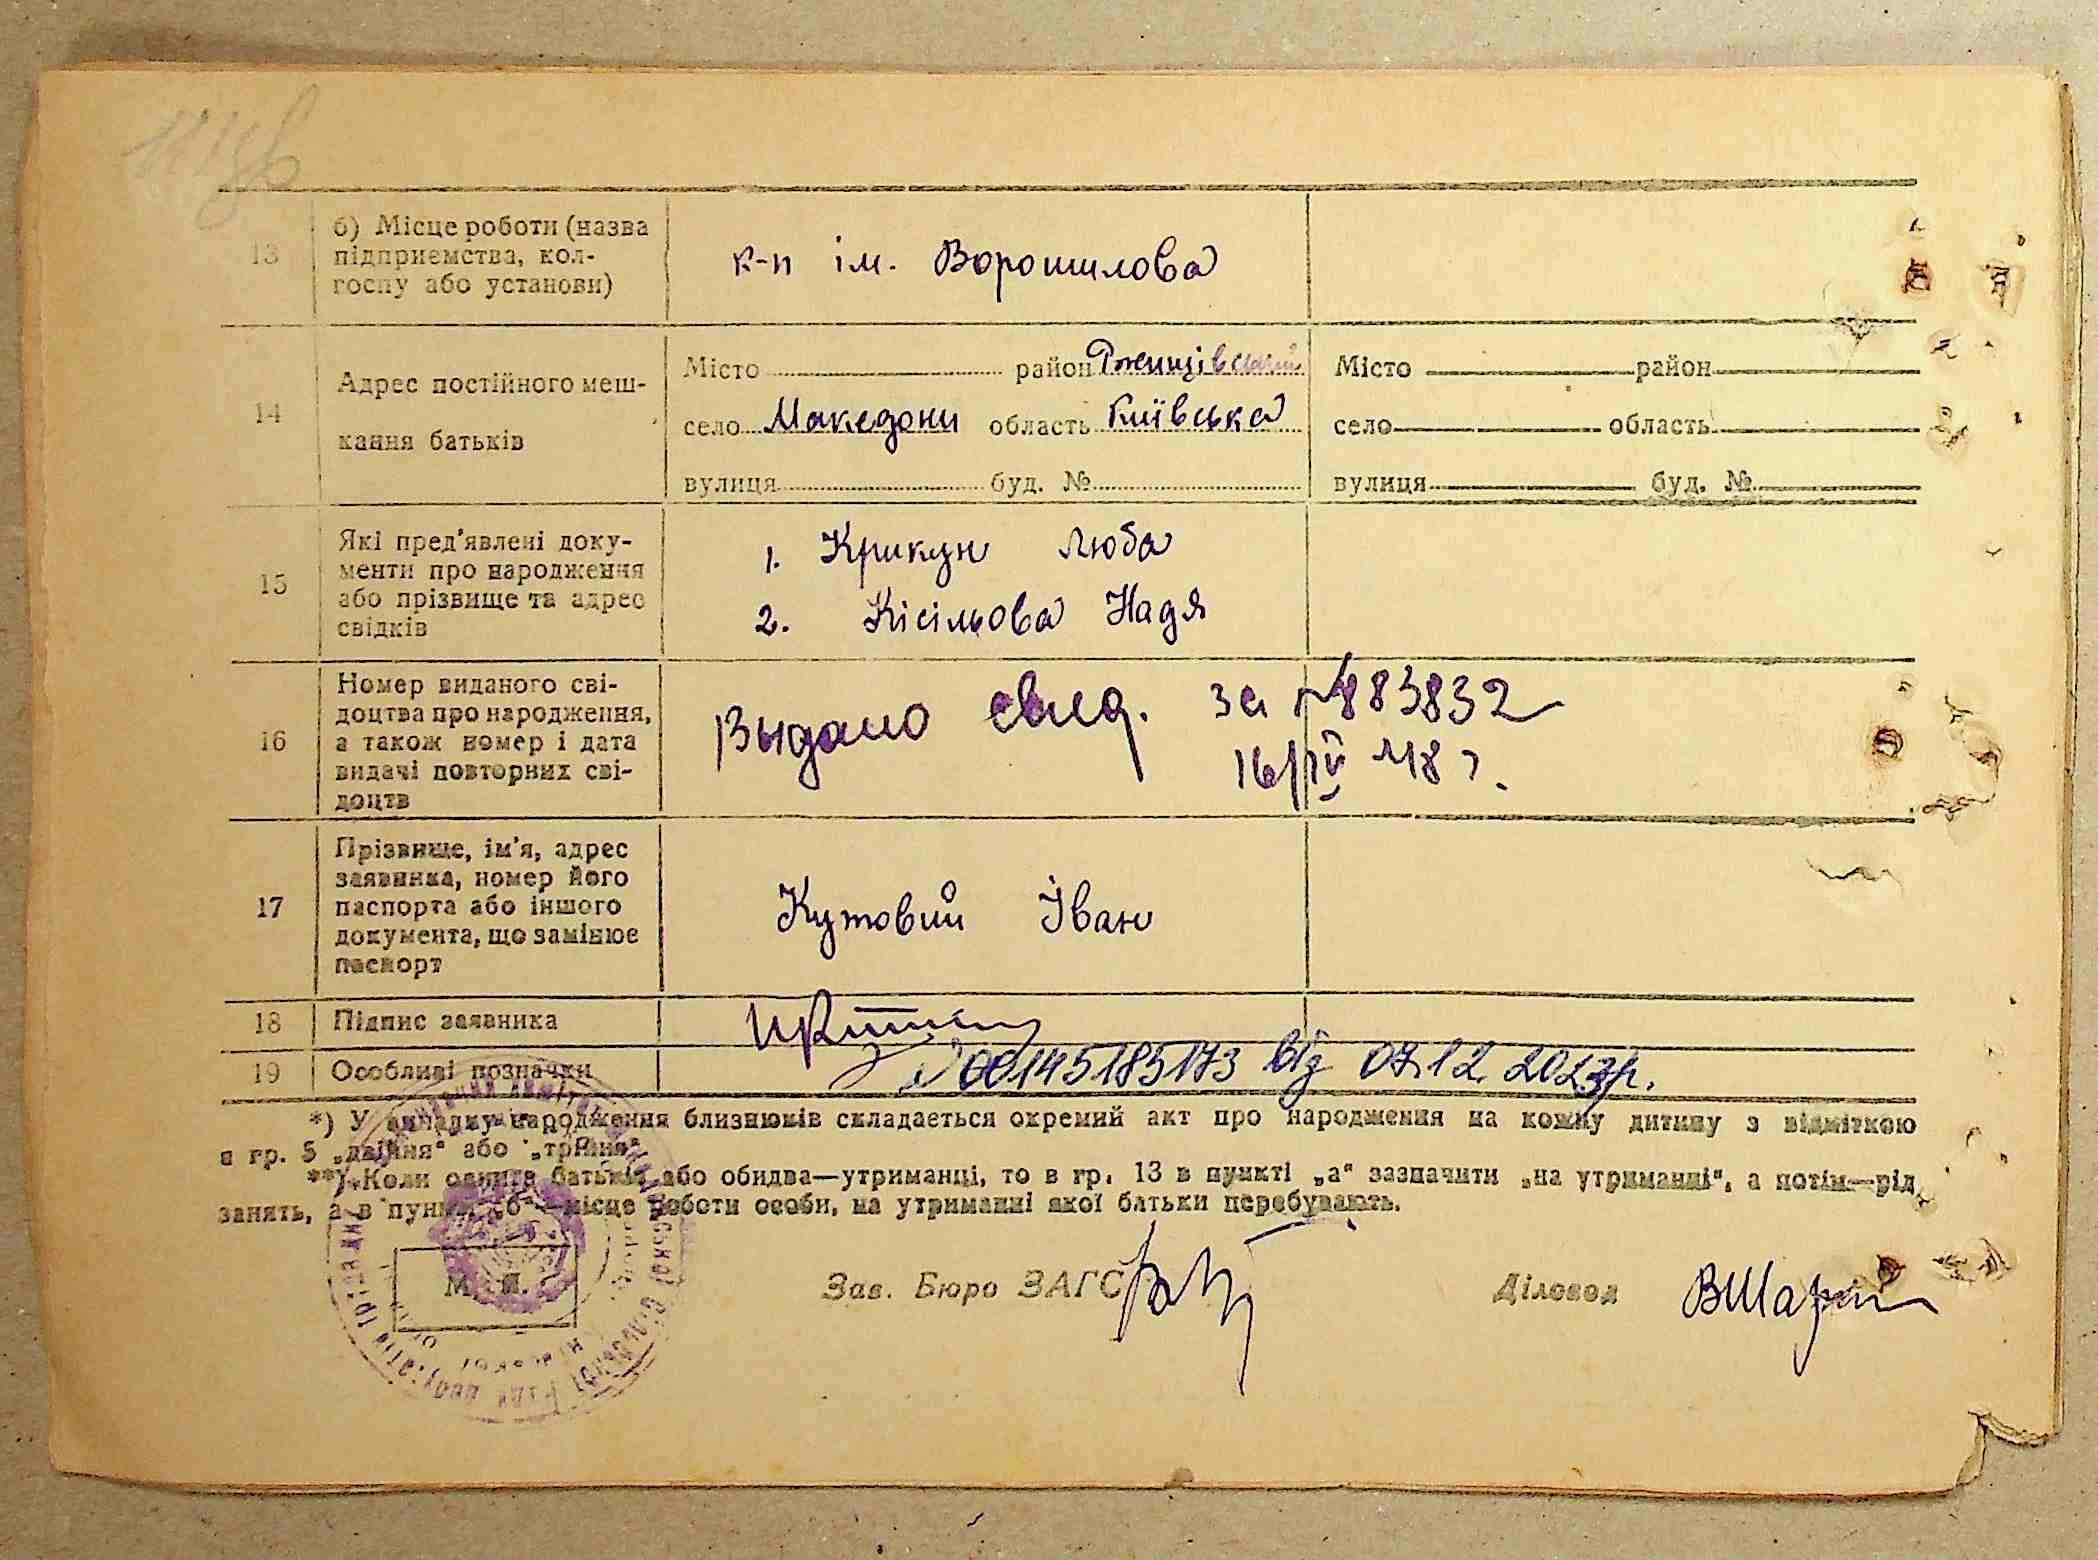 13
б) Місце роботи (назва
підприємства, кол-
госпу або установи)
к-п ім. Ворошилова
14
Адрес постійного меш-
кання батьків
Місто район Ржищівський
село Македони область Київська
вулиця буд. №
Місто район
село область
вулиця буд. №
15
Які пред'явлені доку-
менти про народження
або прізвище та адрес
свідків
1. Крикун Люба
2. Кісільова Надя
16
Номер виданого сві-
доцтва про народження,
а також номер і дата
видачі повторних сві-
доцтв
Выдано свид. за №883832
16/IV 48 г.
17
Прізвище, ім'я, адрес
заявника, номер його
паспорта або іншого
документа, що замінює
паспорт
Кутовий Іван
18
Підпис заявника
19
Особливі позначки
00145185173 від 07.12.2023р.
*) У випадку народження близнюків складається окремий акт про народження на кожну дитину з відміткою
в гр. 5 „двійня“ або „трійня“.
**) Коли один із батьків або обидва—утриманці, то в гр. 13 в пункті „а“ зазначити „на утриманні“, а потім—рід
занять, а в пункті „б“—місце роботи особи, на утриманні якої батьки перебувають.
М. П.
Зав. Бюро ЗАГС
Діловод